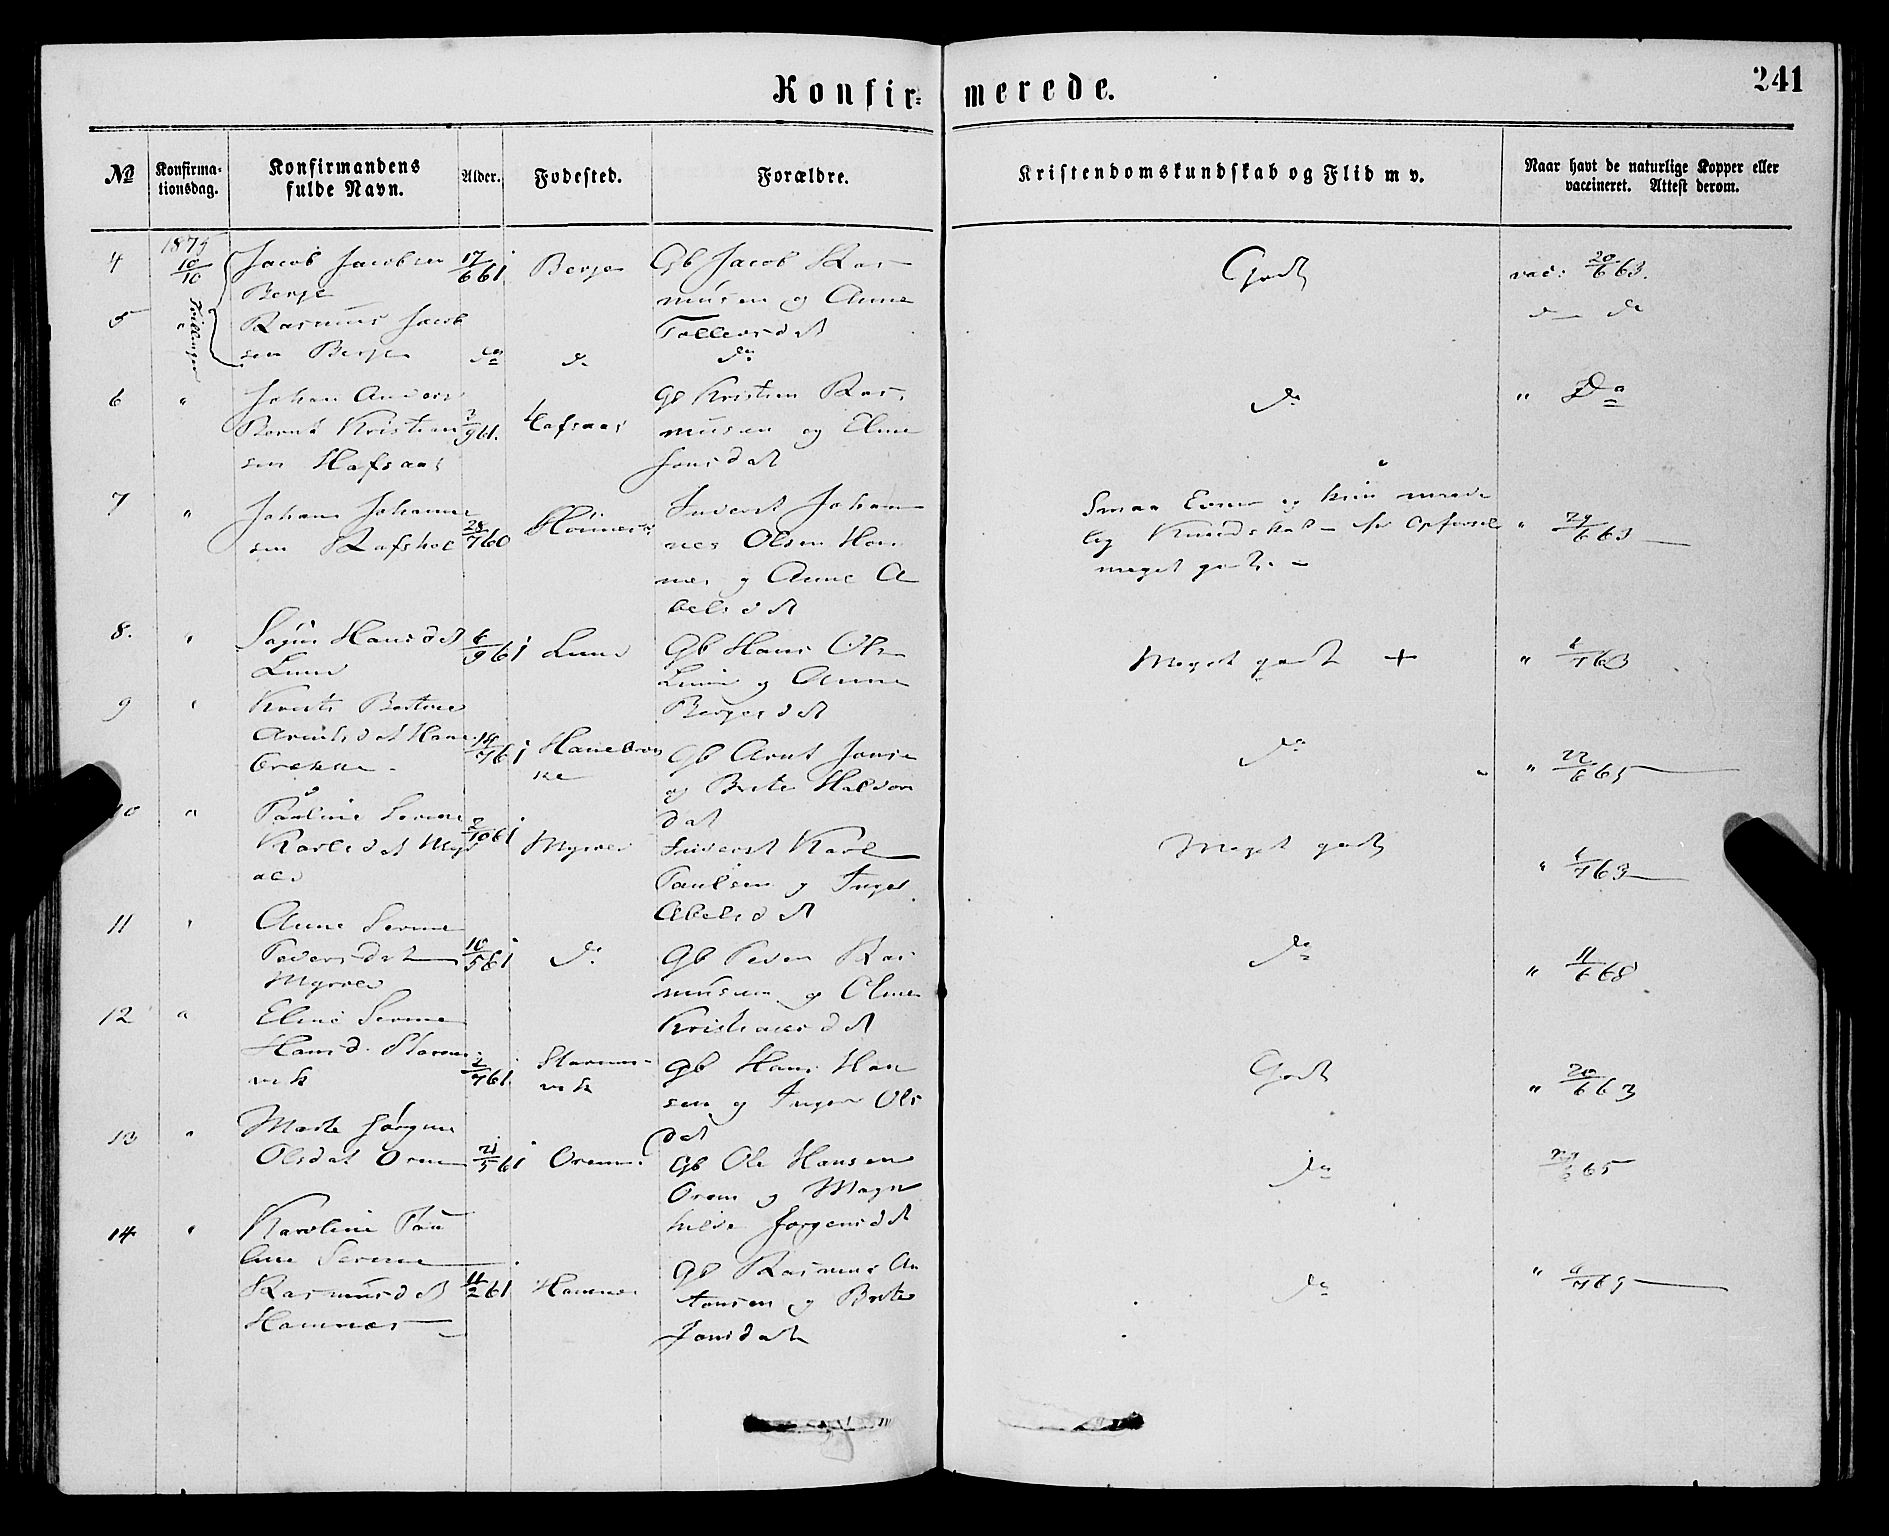 Konfirmerede.
241
№
Konfirma-
tionsdag.
Konfirmandens
fulde Navn.
Alder.
Fodested.
Forældre.
Kristendomskundskab og Flid m v.
Naar havt de naturlige Kopper eller
vaccineret. Attest derom.
4
1875
10/10
Jacob Jacobsen
Berge
17/6 61
Berge
Gb Jacob Ras
musen og Anne
Tollevsdat
Godt
vac: 20/6 63.
5
"
Tvillinger
Rasmus Jacob
sen Berge
do
do
do
do do
6
"
Johan
Bernt Kristian
sen Hafsaas
3/9 61.
Hafsaas
Gb Kristen Ras
musen og Eline
Jonsdat
do
" Do
7
"
Johan Johanne
sen
28/7 60
Inderst Johan
nes Olsen Ham
nes og Anne A
belsdat
Smaa Evner og kun maade
lig Kundskab
meget godt. -
" 29/6 63
8.
"
Hansdat
Lund
6/9 61
Lund
Gb Hans Ols
Lund og Anne
Bergesdat
Meget godt +
" 1/7 63
9
"
Bertine
Arntsdat Hane
brekke
18/7 61
Hanebrek
ke
Gb Arnt Jonse
og Brite Haldor
dat
do
" 22/6 65
10
"
Pauline Serine
Karlsdat Myr
2/10 61
Inderst Karl
Paulsen og Inger
Abelsdat
Meget godt
" 1/7 63
11
"
Anne Serine
Pedersdat
10/5 61
do
Gb Peder Ras
musen og Oline
Kristiansdat
do
" 11/6 68
12
"
Eline Serine
Hansd. Starms
vik
2/7 61.
Starms-
vik
Gb Hans Han
sen og Inger Ols
dat
Godt
" 20/6 63
13
"
Marte Jørgine
Olsdat Orem
21/5 61
Orem
Gb Ole Hansen
Orem og Magn
hilde Jørgensdat
do
65
14
"
Karoline Pau
line Serine
Rasmusdat
Hamnes
11/2 61
Hamnes
Gb Rasmus An
tonsen og Brite
Jonsdat
do